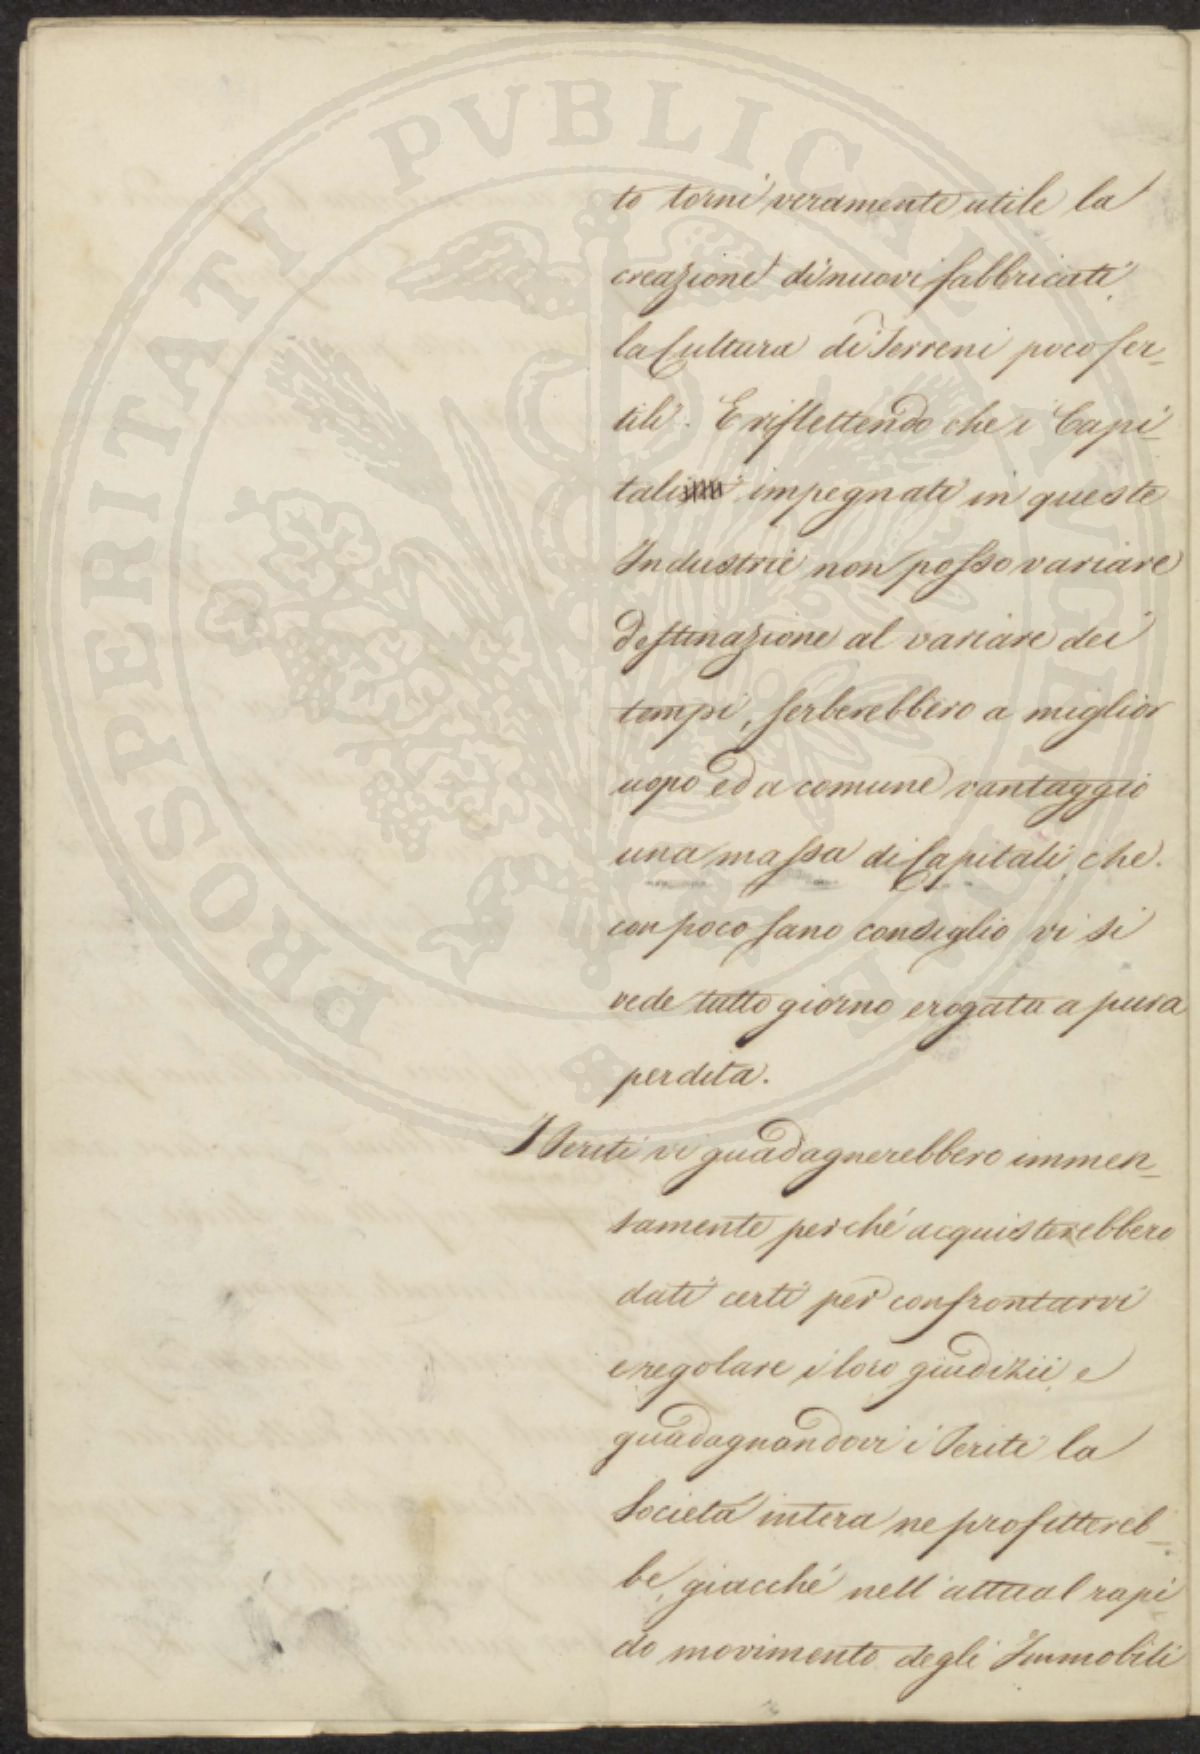 PROSPERITATI PVBLICAE AVGENDAE
to torni veramente utile la
creazione di nuovi fabbricati
la Cultura di Terreni poco fer-
tili. E riflettendo che i Capi-
tali impegnati in queste
Industrie non posso variare
destinazione al variare dei
tempi, serberebbero a miglior
uopo ed a comune vantaggio
una massa di Capitali, che
con poco sano consiglio vi si
vede tutto giorno erogata a pura
perdita.
I Periti vi guadagnerebbero immen-
samente perché acquisterebbero
dati certi per confrontarvi
e regolare i loro giudizii e
guadagnandovi i Periti la
Società intera ne profitereb-
be, giacché nell'attual rapi-
do movimento degli Immobili